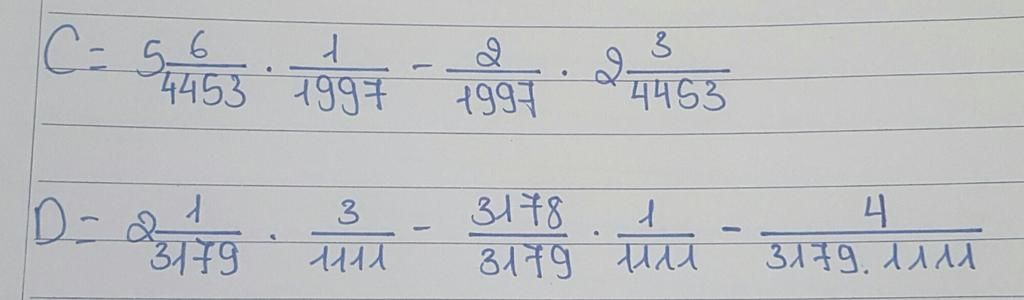 C = 5 6/4453 . 1/1997 - 2/1997 . 2 3/4453
D = 2 1/3179 . 3/1111 - 3178/3179 . 1/1111 - 4/3179.1111